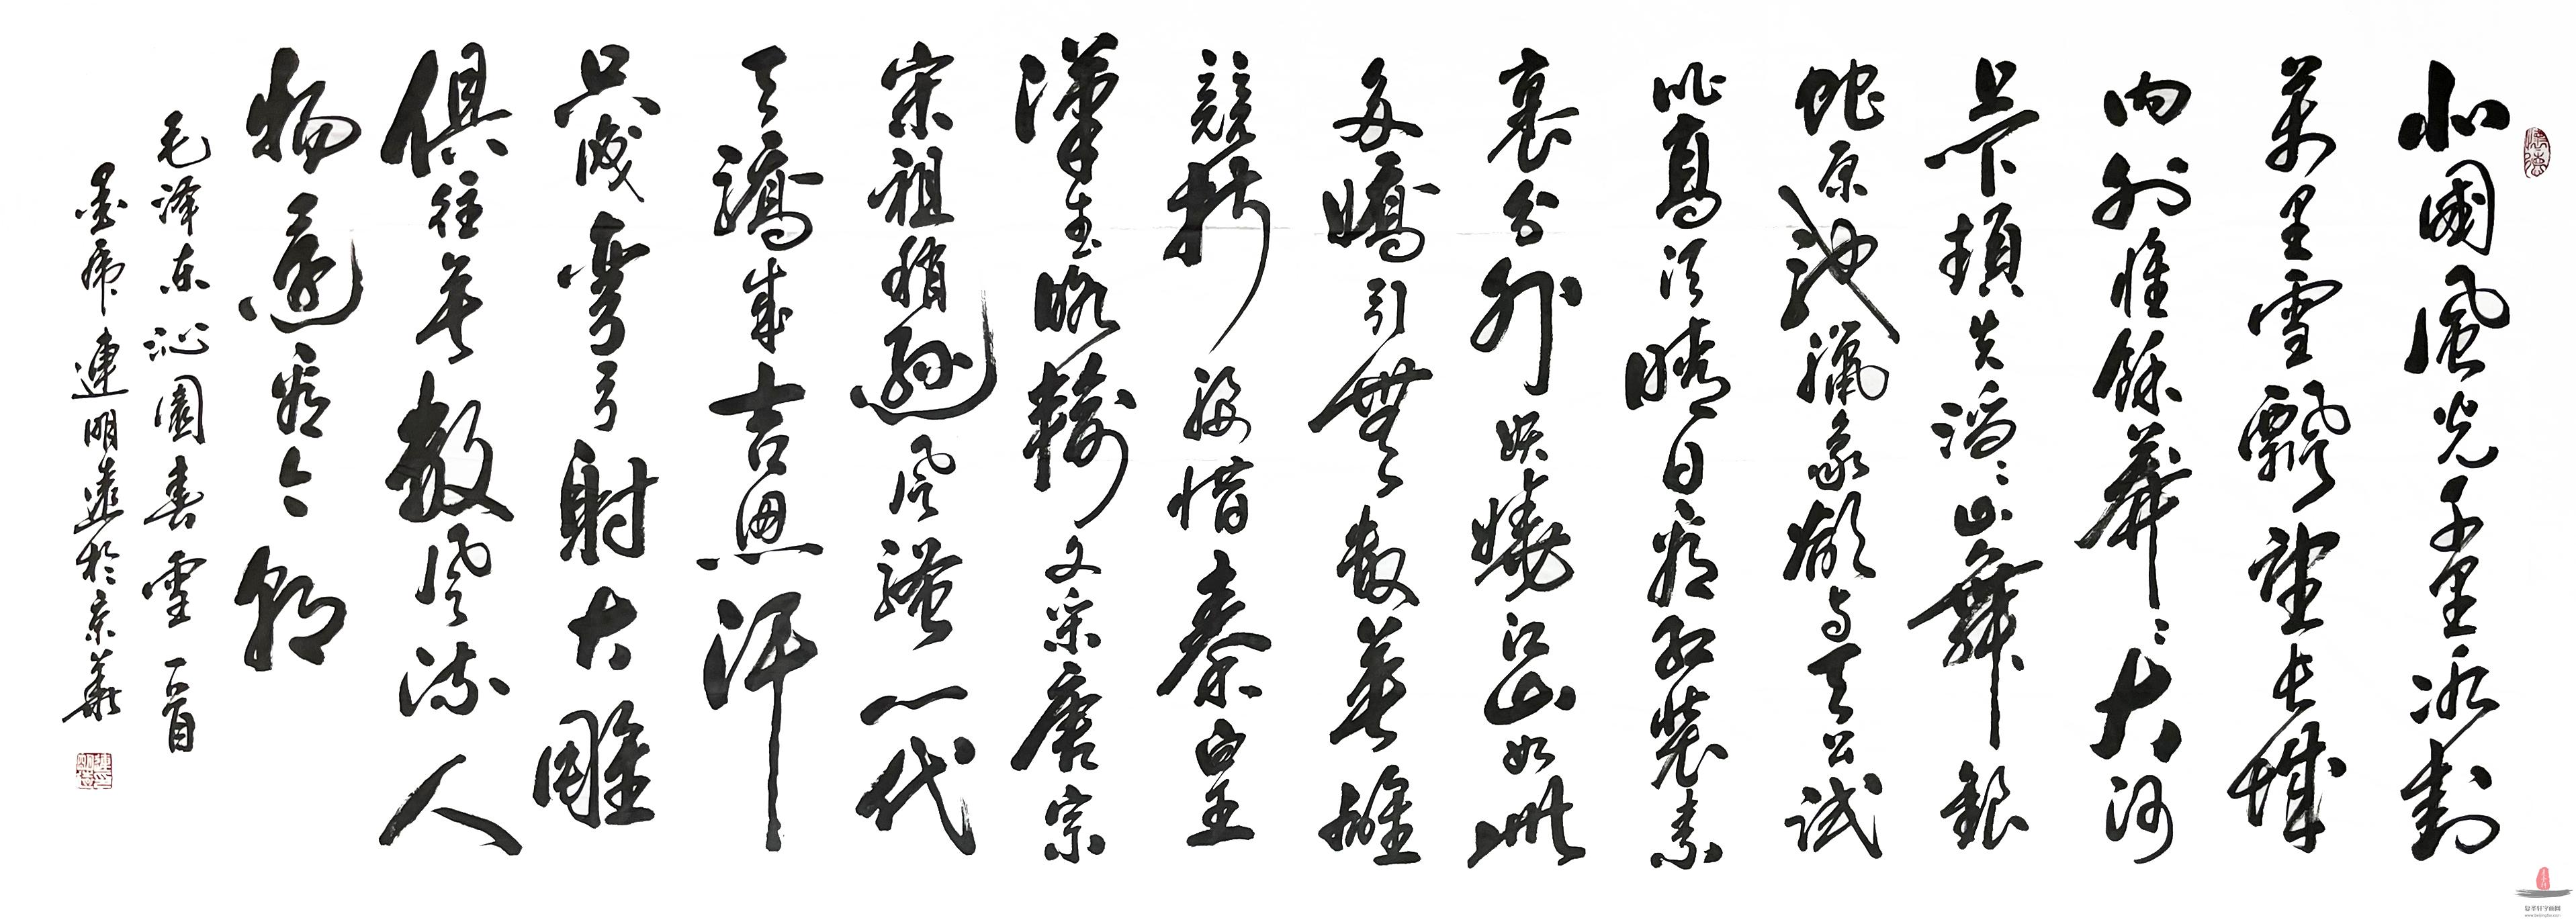 北國風光千里冰封
萬里雪飄望长城
内外惟餘莽〻大河
上下頓失滔〻山舞銀
蛇原馳臘象欲与天公試
比高須晴日看紅裝素
裹分外妖嬈江山如此
多嬌引無數英雄
競折腰惜秦皇
漢武略輸文采唐宗
宋祖稍遜风騷一代
天驕成吉思汗
只識彎弓射大雕
俱往矣數风流人
物還看今朝
毛泽东沁園春雪一首
連明遠於京華